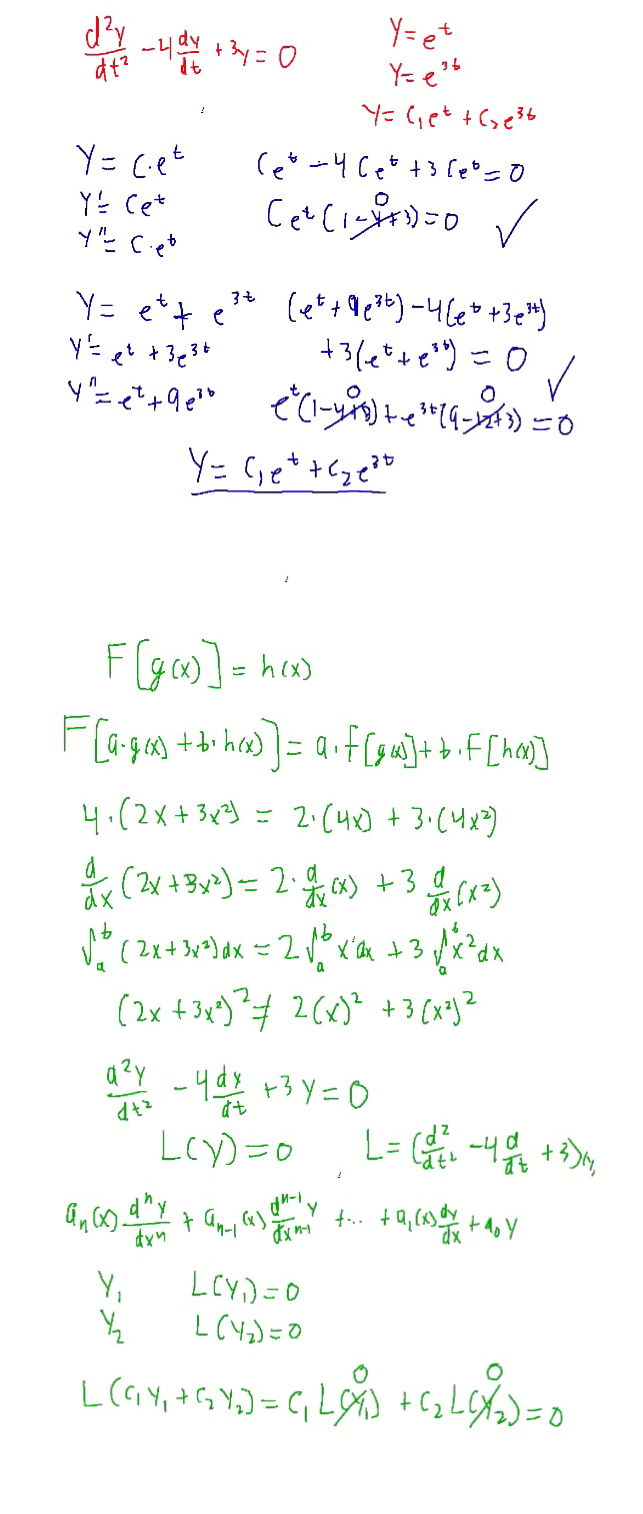 d²y/dt² - 4 dy/dt + 3y = 0
y = e^t
y = e^3t
y = C₁e^t + C₂e^3t
y = C·e^t
y' = Ce^t
y'' = C·e^t
Ce^t - 4Ce^t + 3Ce^t = 0
Ce^t (1-4+3) = 0 ✓
0
y = e^t + e^3t
y' = e^t + 3e^3t
y'' = e^t + 9e^3t
(e^t + 9e^3t) - 4(e^t + 3e^3t)
+ 3(e^t + e^3t) = 0 ✓
0 0
e^t (1-4+3) + e^3t (9-12+3) = 0
y = C₁e^t + C₂e^3t
F[g(x)] = h(x)
F[a·g(x) + b·h(x)] = a·F[g(x)] + b·F[h(x)]
4·(2x + 3x²) = 2·(4x) + 3·(4x²)
d/dx (2x + 3x²) = 2·d/dx (x) + 3 d/dx (x²)
∫_a^b (2x + 3x²) dx = 2∫_a^b x dx + 3∫_a^b x² dx
(2x + 3x²)² ≠ 2(x)² + 3(x²)²
d²y/dt² - 4 dy/dt + 3y = 0
L(y) = 0 L = (d²/dt² - 4 d/dt + 3)
a_n(x) d^n y/dx^n + a_n-1(x) d^n-1 y/dx^n-1 + ... + a₁(x) dy/dx + a₀y
y₁ L(y₁) = 0
y₂ L(y₂) = 0
0 0
L(C₁y₁ + C₂y₂) = C₁L(y₁) + C₂L(y₂) = 0